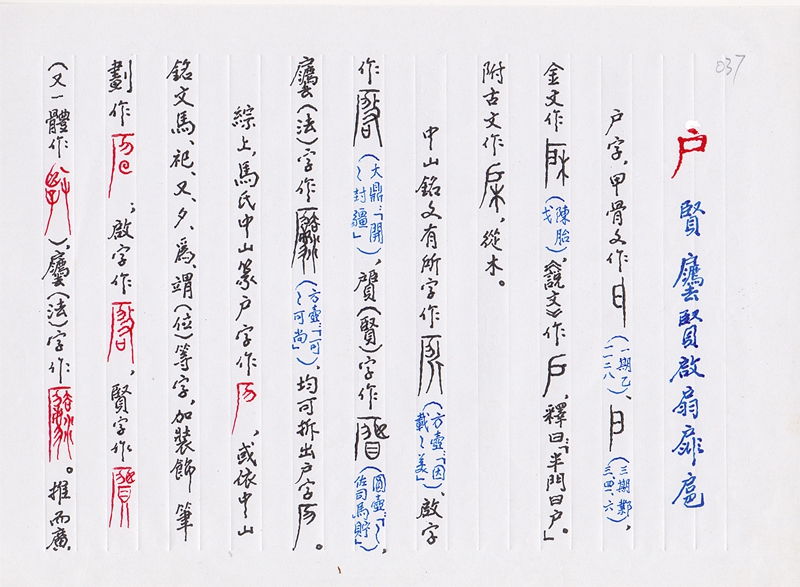 037
戶 賢 啟扇扉扈
戶字，甲骨文作（一期乙一一二八）、（三期鄴三、四、六），
金文作（陳胎戈）《說文》作，釋曰：「半門曰戶。」
附古文作，從木。
中山銘文有所字作（方壺：「因載〻美」），啟字
作（大鼎：「開〻封疆」），（賢）字作（圓壺：「〻佐司馬貯」），
（法）字作（方壺：「可〻可尚」），均可拆出戶字。
綜上，馬氏中山篆戶字作，或依中山
銘文馬、祀、又、夕、為、（位）等字，加裝飾筆
劃作；啟字作，賢字作
（又一體作），（法）字作。推而廣